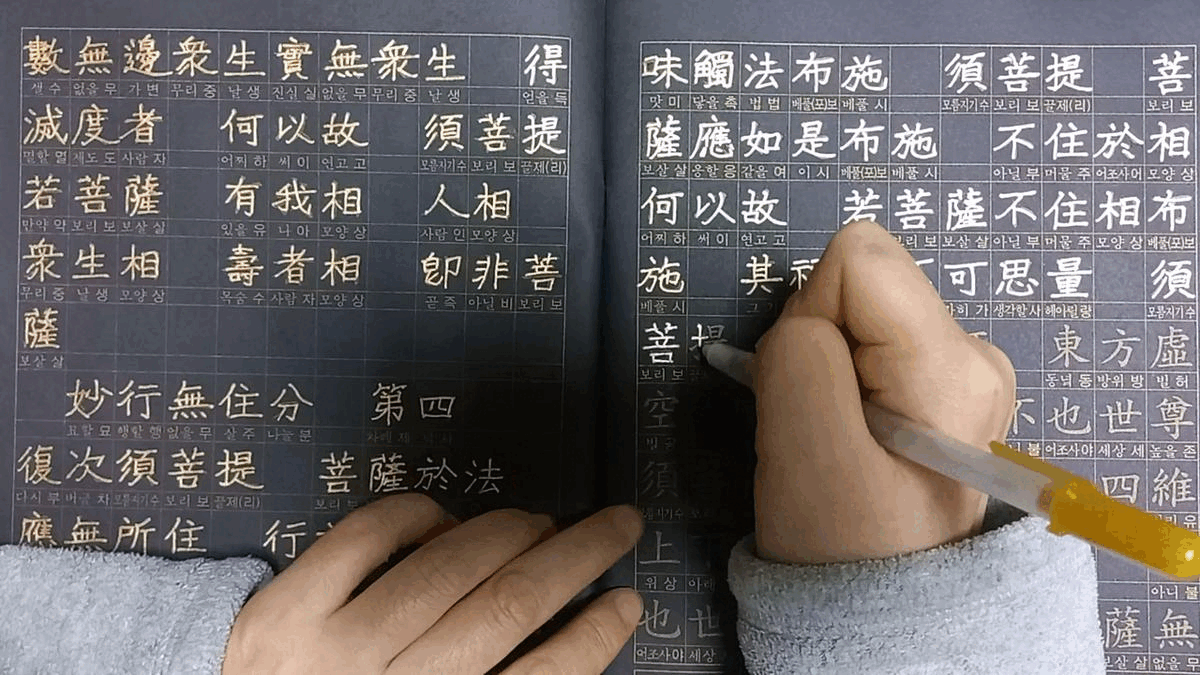 數無邊衆生實無衆生 得
셀 수 없을 무 가 변 무리 중 날 생 진실 실 없을 무 무리 중 날 생 얻을 득
滅度者 何以故 須菩提
멸할 멸 제도 도 사람 자 어찌 하 써 이 연고 고 모름지기 수 보리 보 끌제(리)
若菩薩 有我相 人相
만약 약 보리 보 보살 살 있을 유 나 아 모양 상 사람 인 모양 상
衆生相 壽者相 卽非菩
무리 중 날 생 모양 상 목숨 수 사람 자 모양 상 곧 즉 아닐 비 보리 보
薩
보살 살
妙行無住分 第四
묘할 묘 행할 행 없을 무 살 주 나눌 분 차례 제 넉 사
復次須菩提 菩薩於法
다시 부 버금 차 모름지기 수 보리 보 끌제(리) 보리 보
應無所住 行
味觸法布施 須菩提 菩
맛 미 닿을 촉 법 법 베풀(포)보 베풀 시 모름지기 수 보리 보 끌제(리) 보리 보
薩應如是布施 不住於相
보살 살 응할 응 같을 여 이 시 베풀(포)보 베풀 시 아닐 부 머물 주 어조사 어 모양 상
何以故 若菩薩不住相布
어찌 하 써 이 연고 고 보리 보 보살 살 아닐 부 머물 주 모양 상 베풀(포)보
施 其 可思量 須
베풀 시 그 가히 가 생각할 사 헤아릴 량 모름지기 수
菩提 東方虛
보리 보 동녘 동 방위 방 빌 허
空 不也世尊
빌 공 불 어조사 야 세상 세 높을 존
須 四維
모름지기 수
上
위 상 아래 아니 불
也世 薩無
어조사 야 세상 보살 살 없을 무